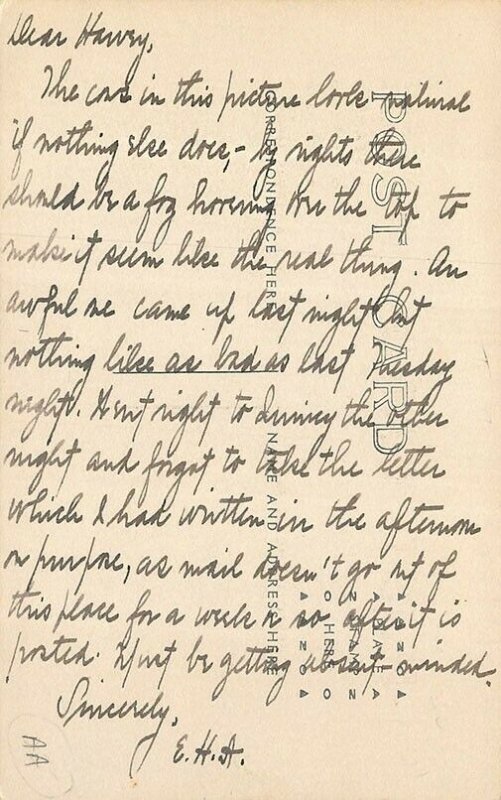 Dear Harvey,
The cows in this picture look natural
if nothing else does, - by rights there
should be a fog hovering over the top to
make it seem like the real thing. An
awful one came up last night but
nothing like as bad as last Tuesday
night. Went right to Quincy the other
night and forgot to take the letter
which I had written in the afternoon
on purpose, as mail doesn't go out of
this place for a week or so after it is
posted. Must be getting absent-minded.
Sincerely,
E.H.A.
AA
POST CARD
CORRESPONDENCE HERE
NAME AND ADDRESS HERE
PLACE
STAMP
HERE